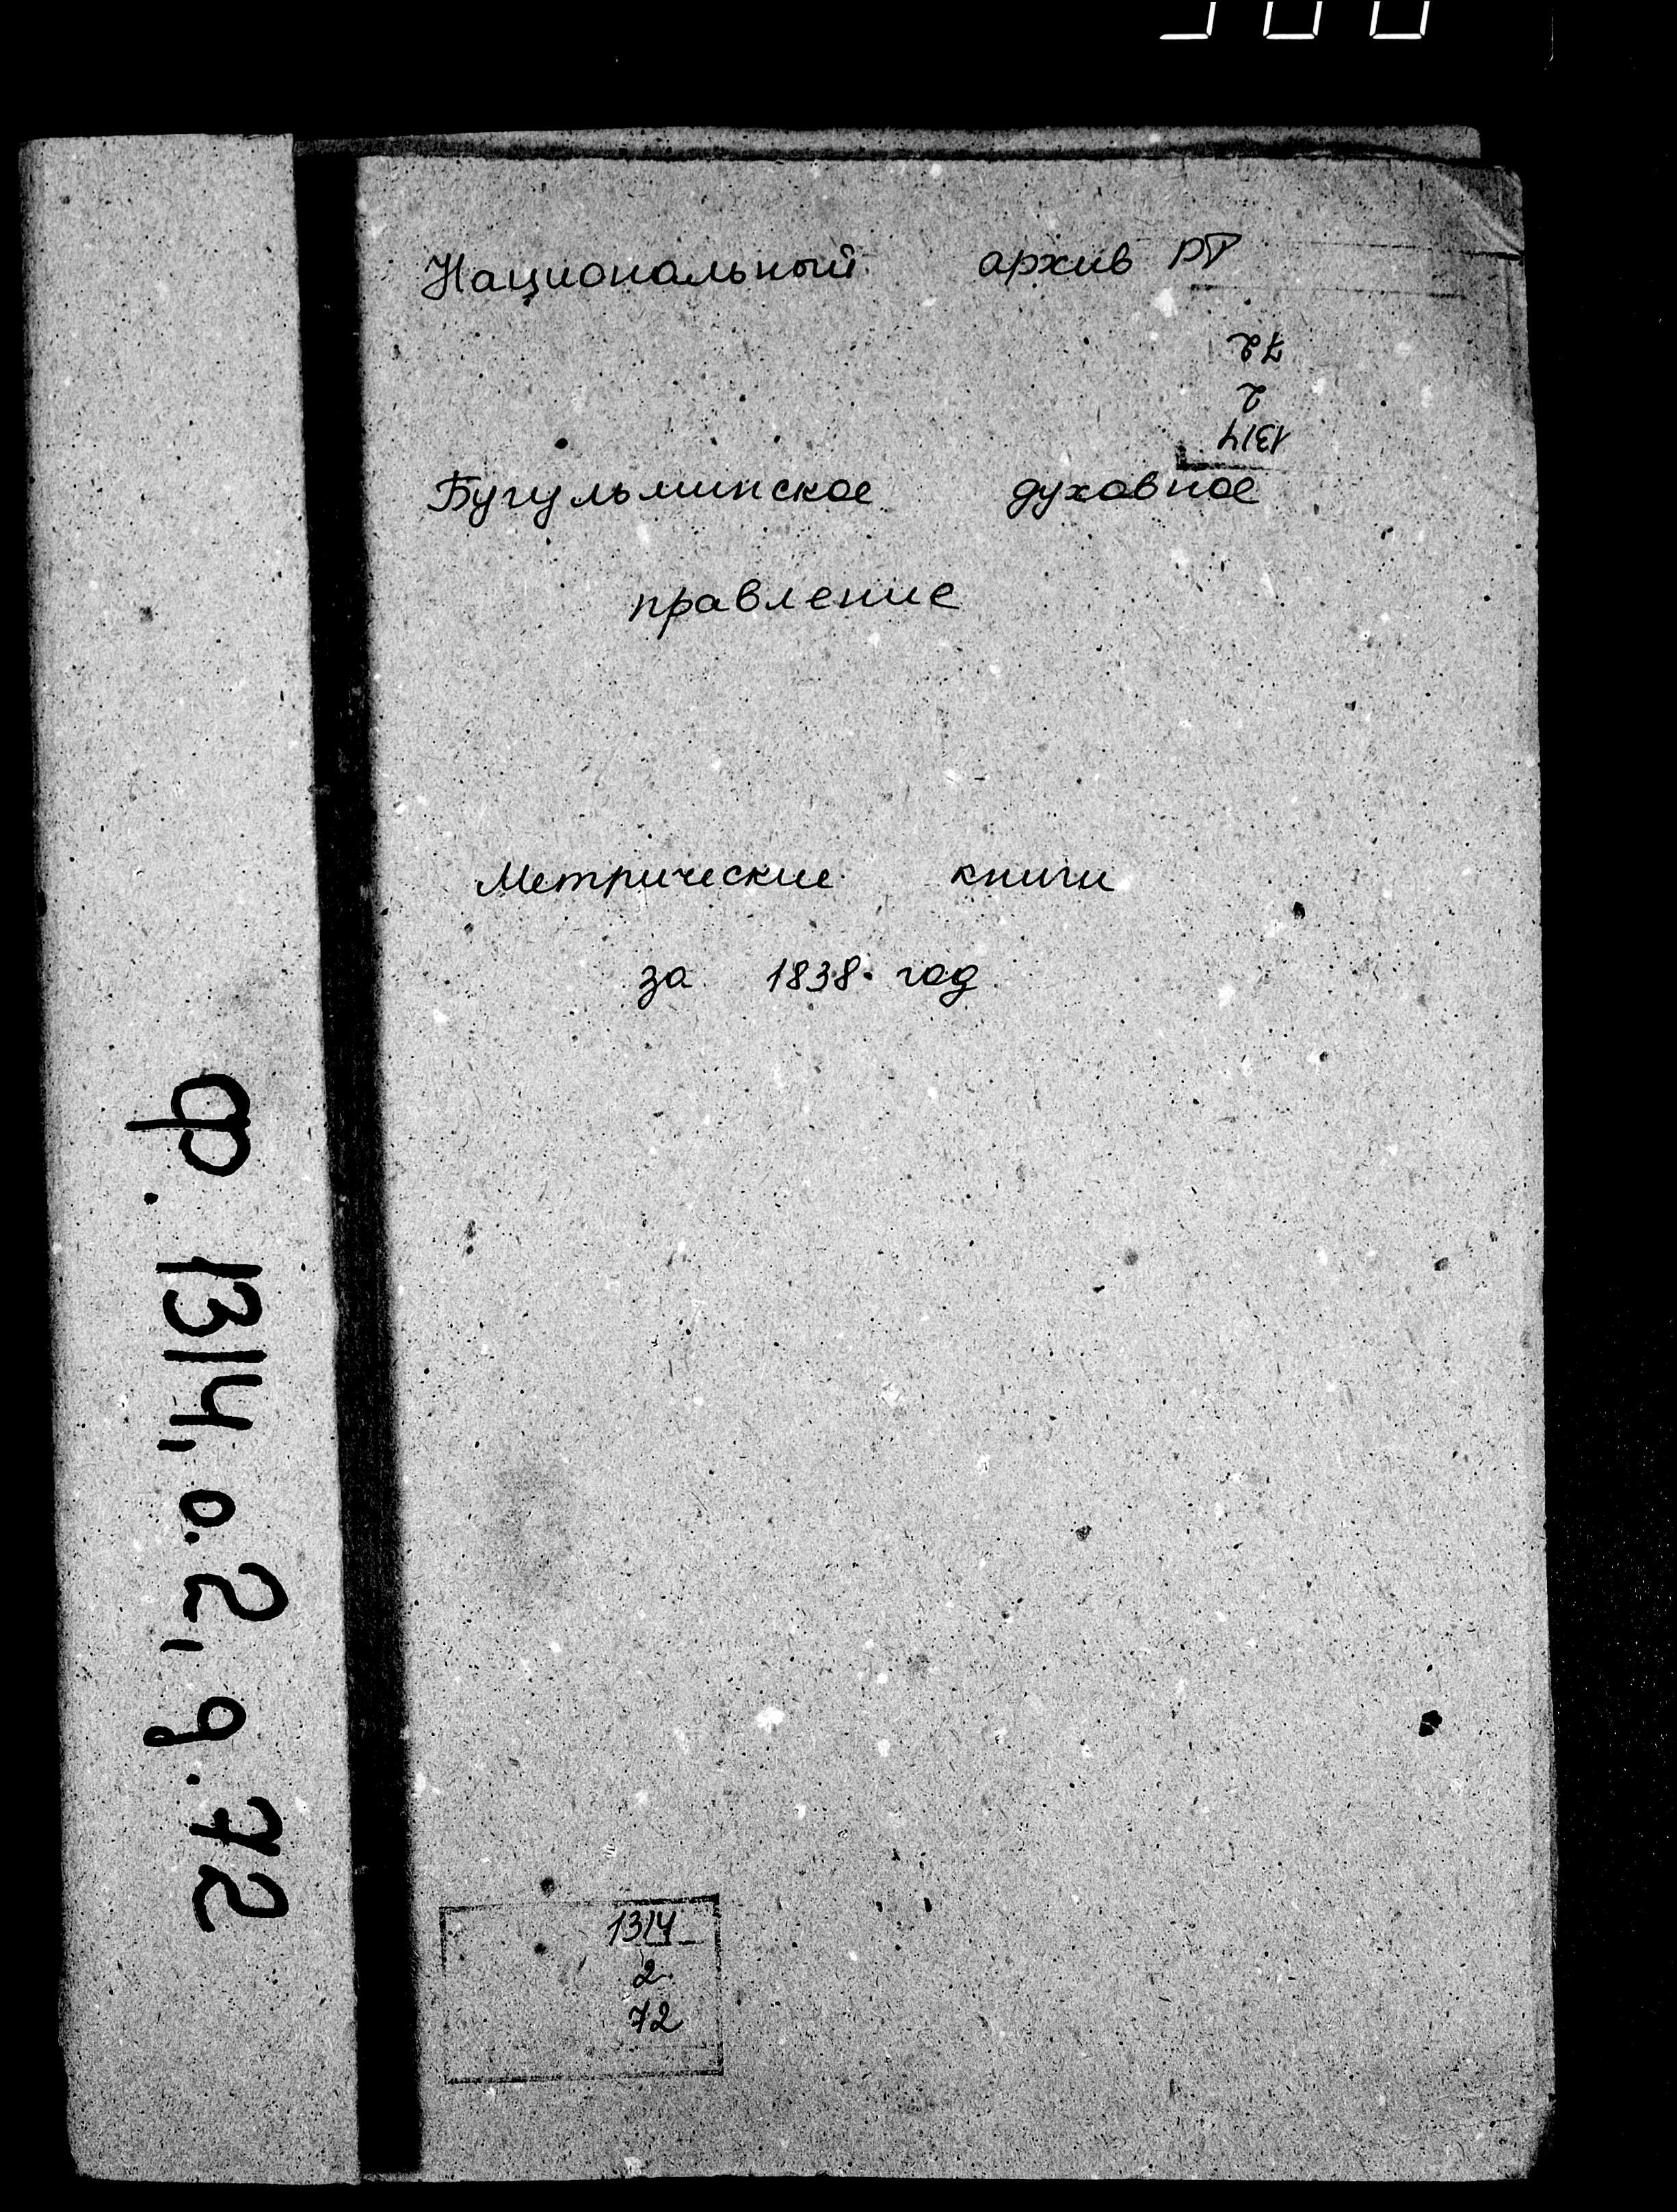 Национальный архив РТ
72
2
1314
Бугульминское духовное
правление
Метрические книги
за 1838 год
ф. 1314, о. 2, д. 72
1314
2
72